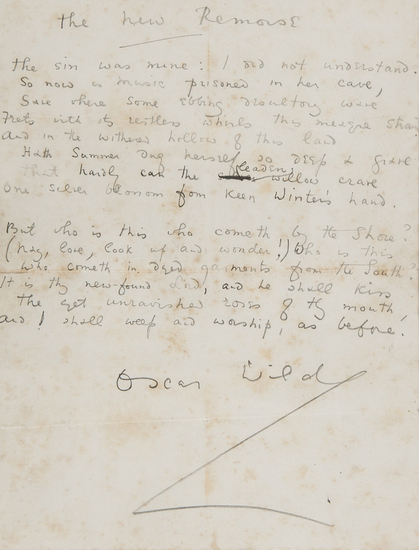 the New Remorse
The sin was mine: I did not understand.
So now is music prisoned in her cave,
Save where some ebbing desultory wave
Frets with its restless whirls this meagre strand
And in the withered hollow of this land
Hath Summer dug herself so deep a grave
that hardly can the leaden willow crave
One silver blossom from Keen Winter's hand.
But who is this who cometh by the Shore?
(Nay, love, look up and wonder!) Who is this
who cometh in dyed garments from the South?
It is thy new-found Lord, and he shall Kiss
the yet unravished roses of thy mouth,
and I shall weep and worship, as before.
Oscar Wilde